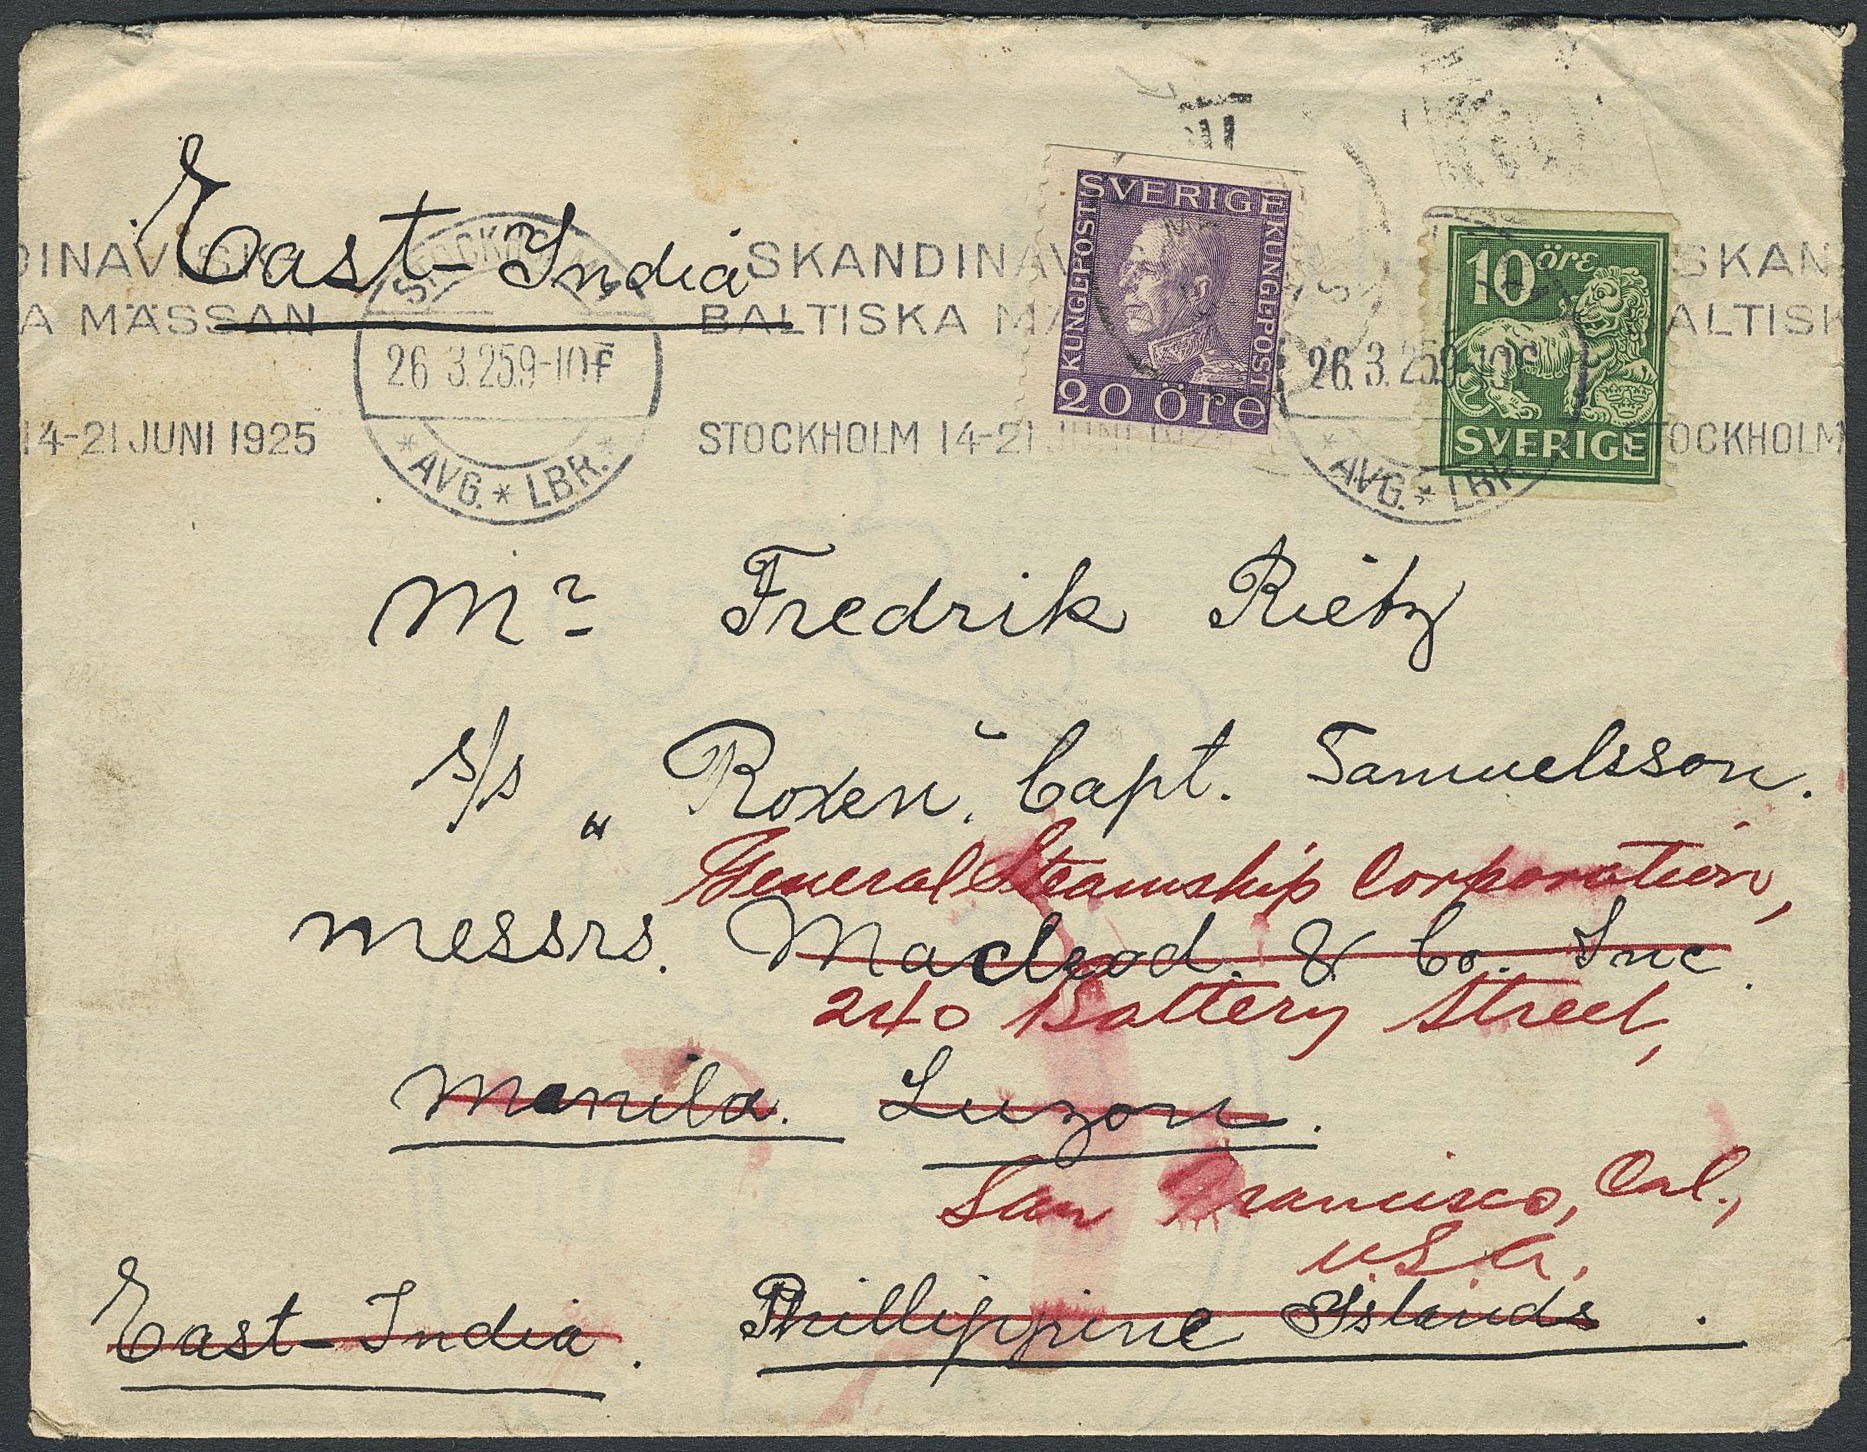 East-India
DINAVISKA
A MÄSSAN
14-21 JUNI 1925
STOCKHOLM
26.3.25.9-10F
* AVG. * LBR. *
SKANDINAV
BALTISKA MÄ
STOCKHOLM 14-21 JUNI 1925
SVERIGE
KUNGL.POST
KUNGL.POST
20 öre
26.3.25.9-10F
* AVG. * LBR.
10 öre
SVERIGE
SKAN
ALTISK
STOCKHOLM
Mr Fredrik Rietz
s/s „Roxen" Capt. Samuelsson.
General Steamship Corporation,
Messrs. Macleod. & Co. Inc.
240 Battery Street,
Manila. Luzon.
San Francisco, Cal.,
U.S.A.
East-India. Phillippine Islands.